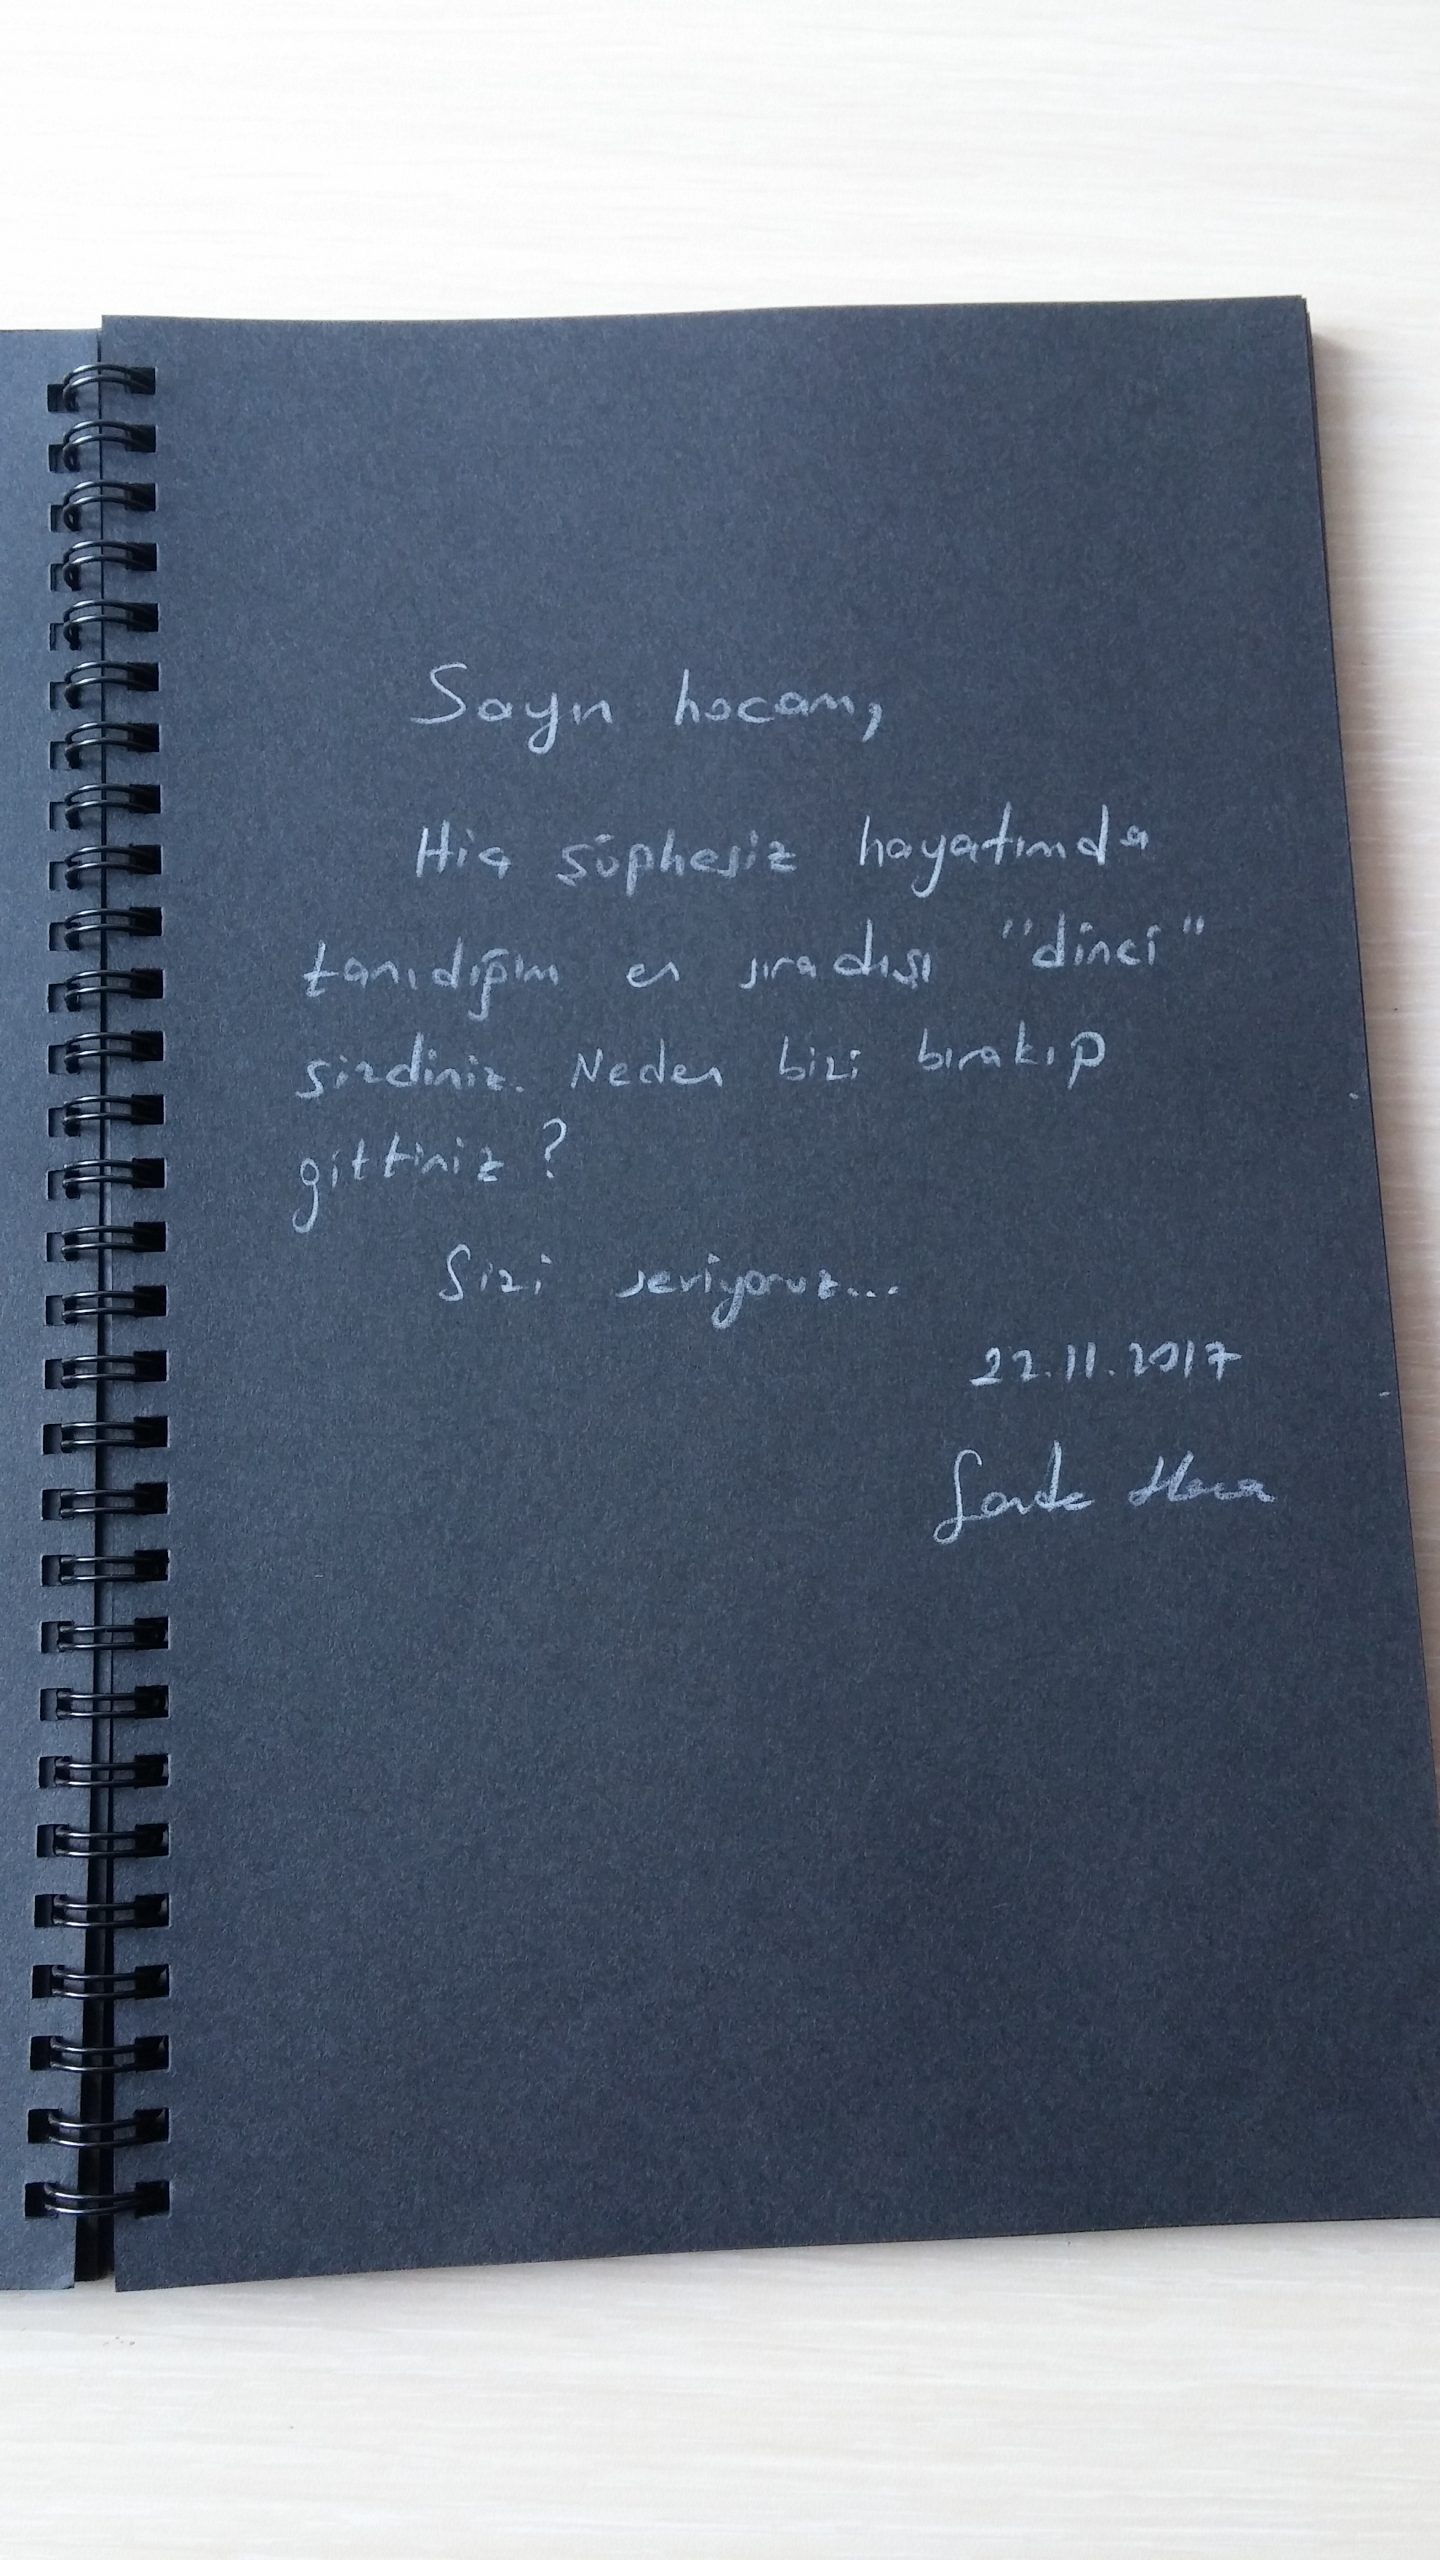 Sayın hocam,
Hiç şüphesiz hayatımda
tanıdığım en sıradışı "dinci"
sizdiniz. Neden bizi bırakıp
gittiniz?
Sizi seviyoruz...
22.11.2017